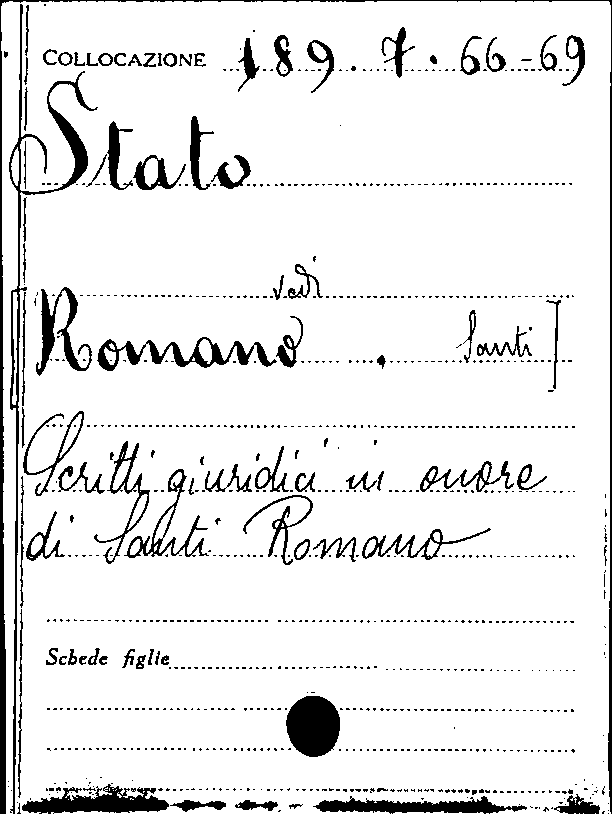 COLLOCAZIONE 189.7.66-69
Stato
vedi
[Romano. Santi]
Scritti giuridici in onore
di Santi Romano
Schede figlie